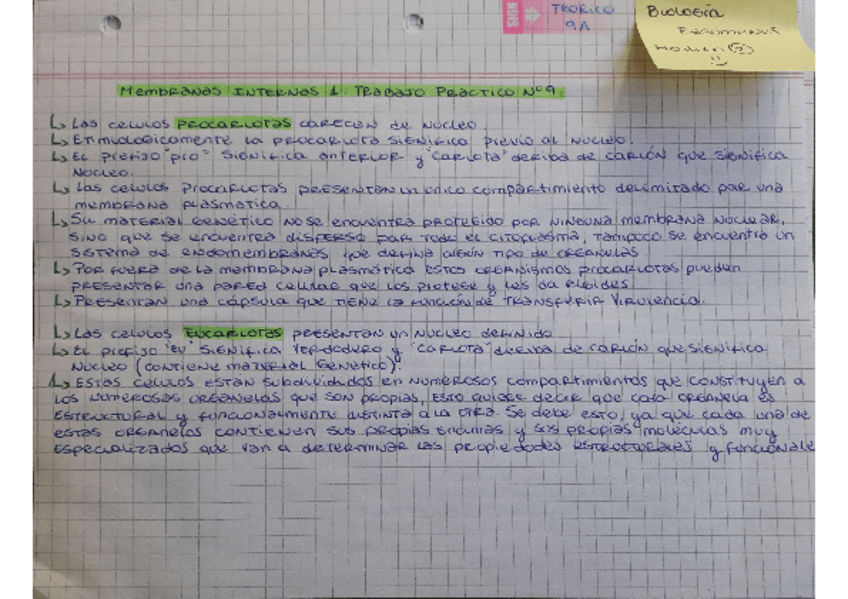 SIGN
TEORICO
9A
Biología
Resúmenes
MEMBRANAS INTERNAS 1: TRABAJO PRACTICO N°9
↳ Las celulas PROCARIOTAS carecen de núcleo.
↳ Etimologicamente la procariota significa previo al nucleo.
↳ El prefijo "pro" significa anterior y "cariota" deriba de carión que significa
núcleo.
↳ Las celulas procariotas presentan un único compartimiento delimitado por una
membrana plasmática.
↳ Su material genético no se encuentra protegido por ninguna membrana nuclear,
sino que se encuentra disperso por todo el citoplasma, tampoco se encuentra un
sistema de endomembranas que defina algún tipo de organelas
↳ Por fuera de la membrana plasmática estos organismos procariotas pueden
presentar una pared celular que los protege y les da rigidez
↳ Presentan una cápsula que tiene la función de transferir virulencia.
↳ Las celulas EUCARIOTAS presentan un nucleo definido
↳ El prefijo "eu" significa verdadero y "cariota" deriba de carión que significa
núcleo (contiene material genético).
↳ Estas células están subdivididas en numerosos compartimientos que constituyen a
los numerosas organelas que son propias, esto quiere decir que cada organela es
estructural y funcionalmente distinta a la otra. Se debe esto, ya que cada una de
estas organelas contienen sus propias enzimas y sus propias moléculas muy
especializadas que van a determinar las propiedades estructurales y funcionale